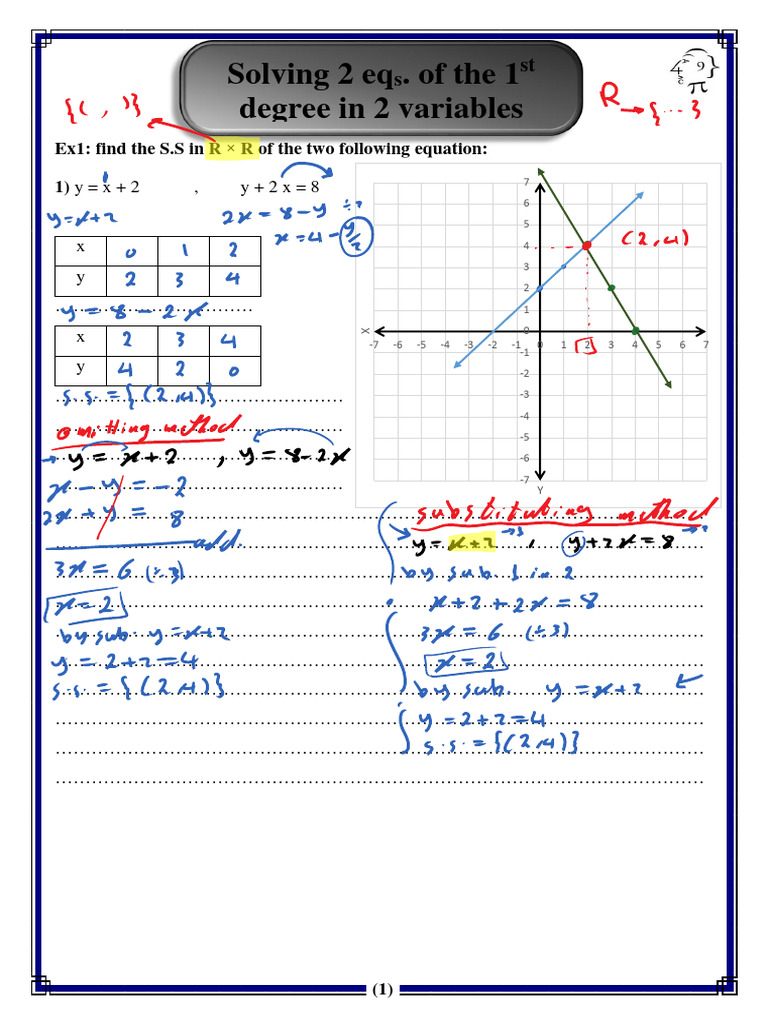 Solving 2 eqs. of the 1st
degree in 2 variables
{( , )}
R → {...}
Ex1: find the S.S in R × R of the two following equation:
1) y = x + 2 , y + 2 x = 8
y = x + 2
2x = 8 - y ÷2
x = 4 - y/2
x 0 1 2
y 2 3 4
y = 8 - 2x
x 2 3 4
y 4 2 0
s.s. = {(2,4)}
7
6
5
4
3
2
1
0
-1
-2
-3
-4
-5
-6
-7
-7 -6 -5 -4 -3 -2 -1 0 1 2 3 4 5 6 7
X
Y
(2,4)
omitting method
y = x + 2 , y = 8 - 2x
x - y = -2
2x + y = 8
add.
3x = 6 (÷3)
x = 2
by sub. y = x + 2
y = 2 + 2 = 4
s.s = {(2,4)}
substituting method
y = x + 2 → 1 , y + 2x = 8 → 2
by sub. 1 in 2
x + 2 + 2x = 8
3x = 6 (÷3)
x = 2
by sub. y = x + 2
y = 2 + 2 = 4
s.s = {(2,4)}
(1)